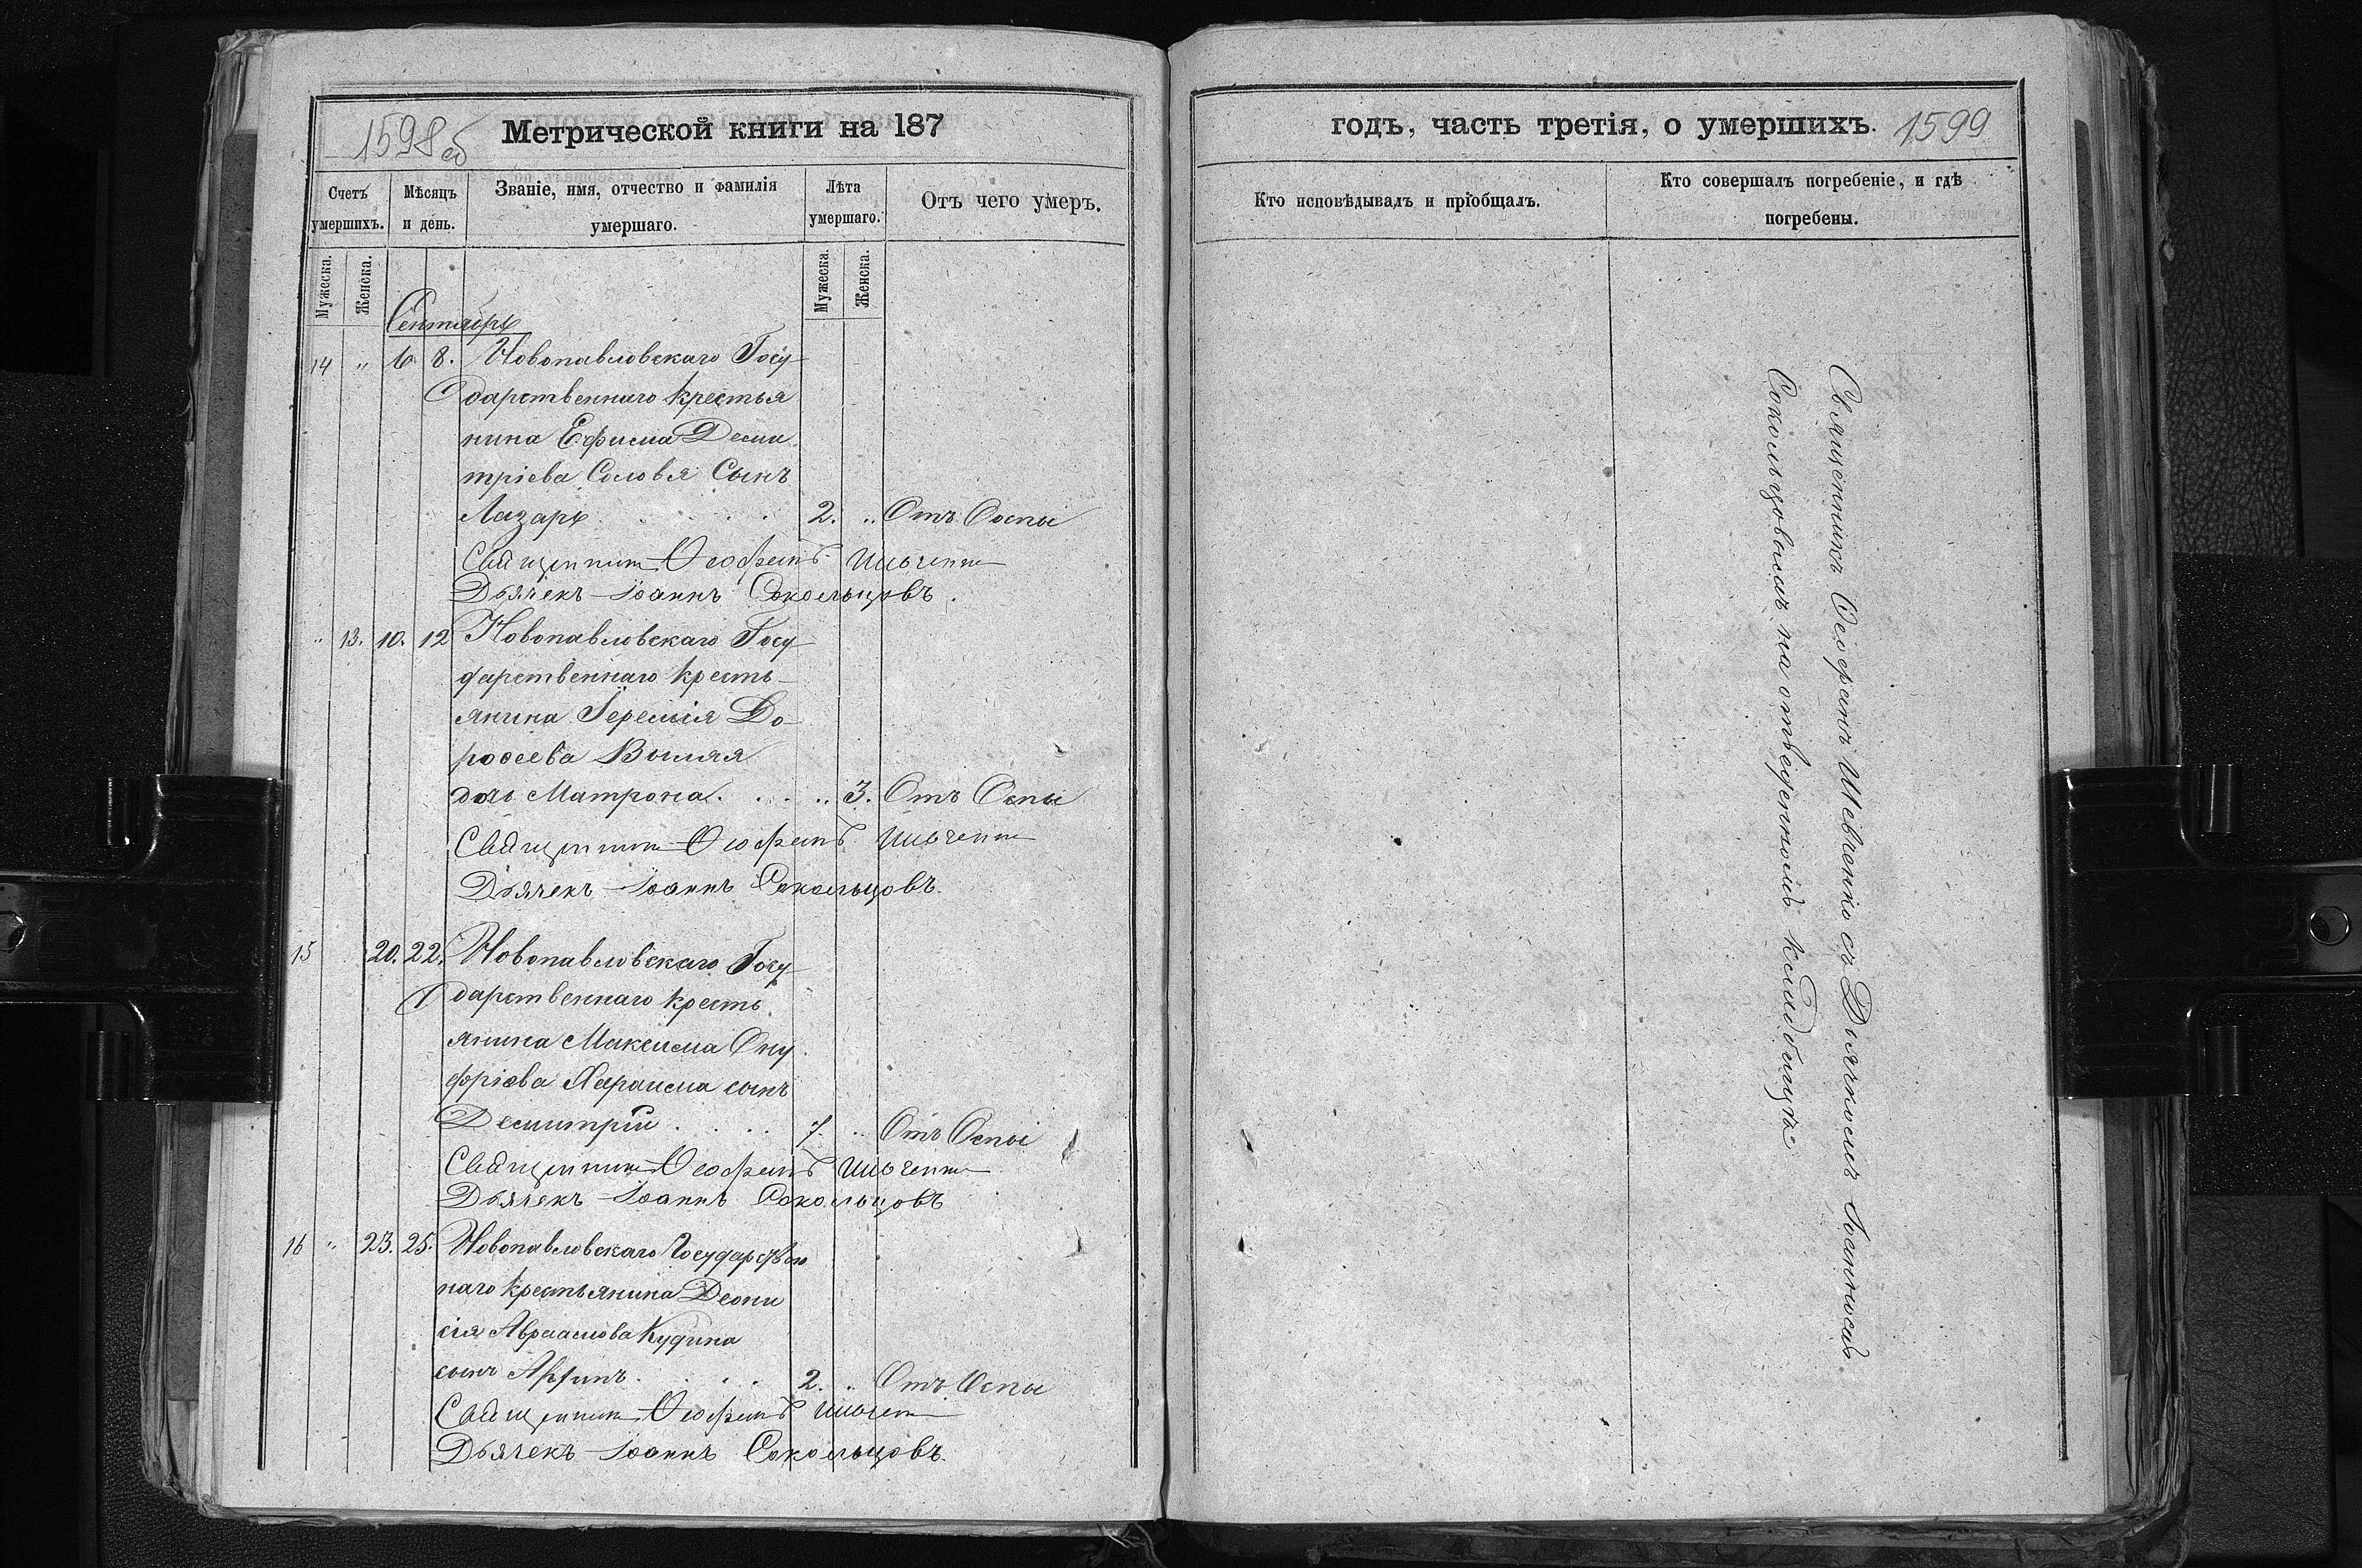 1598об
Метрической книги на 187
Счетъ умершихъ.
Мѣсяцъ и день.
Званіе, имя, отчество и фамилія умершаго.
Лѣта умершаго.
Отъ чего умеръ.
Мужеска.
Женска.
Мужеска.
Женска.
Сентябрь
14 " 6 8. Новопавловскаго Госу
дарственнаго крестья
нина Ефима Дими
тріева Соловья Сынъ
Лазарь 2. " Отъ Оспы
Священникъ Ѳеофанъ Шевченко
Дьячекъ Іоаннъ Сокольцовъ.
" 13. 10. 12 Новопавловскаго Госу
дарственнаго кресть
янина Іеремія До
роѳеева
дочь Матрона " 3. Отъ Оспы
Священникъ Ѳеофанъ Шевченко
Дьячекъ Іоаннъ Сокольцовъ.
15 20. 22. Новопавловскаго Госу
дарственнаго кресть
янина Максима Ону
фріева сынъ
Димитрій 7. " Отъ Оспы
Священникъ Ѳеофанъ Шевченко
Дьячекъ Іоаннъ Сокольцовъ
16 " 23. 25. Новопавловскаго Государствен
наго крестьянина Деони
сія Авраамова Кудина
сынъ 2. " Отъ Оспы
Священникъ Ѳеофанъ Шевченко
Дьячекъ Іоаннъ Сокольцовъ.
годъ, часть третія, о умершихъ.
1599
Кто исповѣдывалъ и пріобщалъ.
Кто совершалъ погребеніе, и гдѣ погребены.
Священникъ Ѳеофанъ Шевченко съ Дьячкомъ Іоанномъ
Сокольцовымъ на отведенномъ кладбищѣ